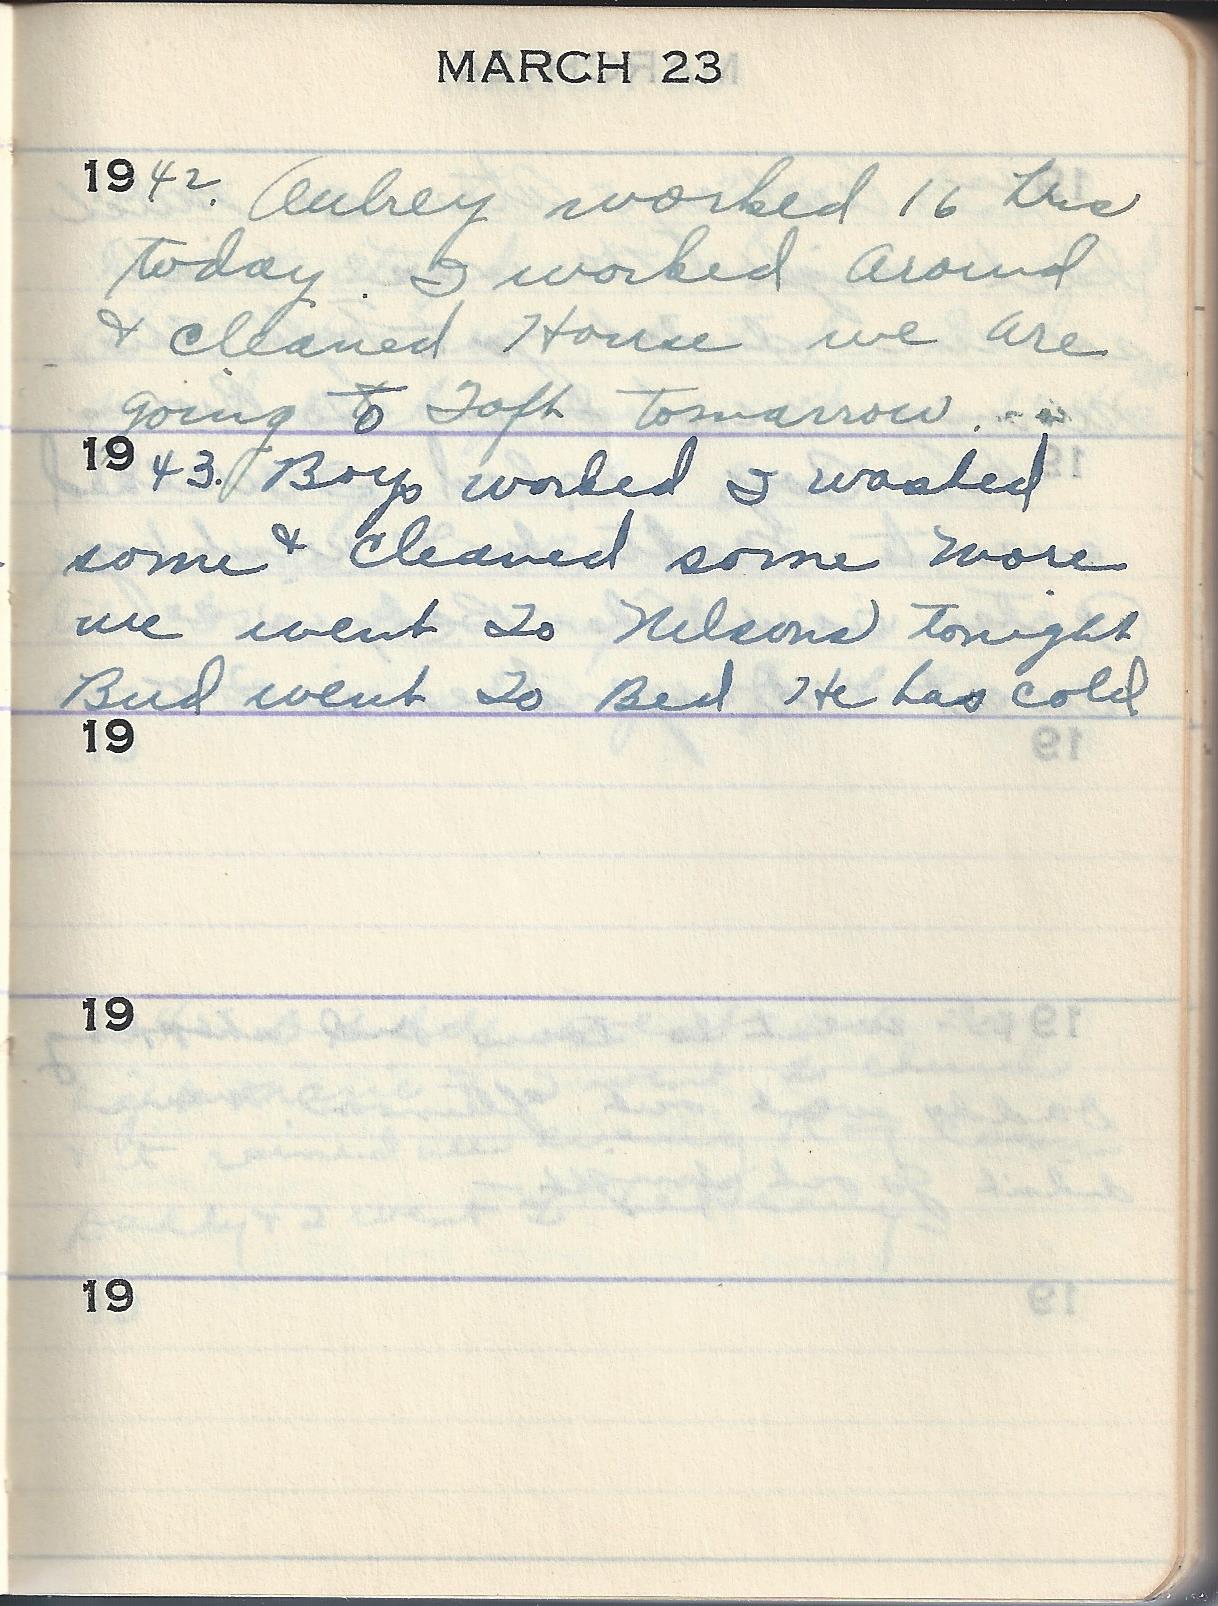 MARCH 23
1942. Aubrey worked 16 hrs
today. I worked around
& cleaned House we are
going to Taft tomarrow.
1943. Boys worked I washed
some & cleaned some more
we went To Nelsons tonight
Bud went To Bed He has cold
19
19
19